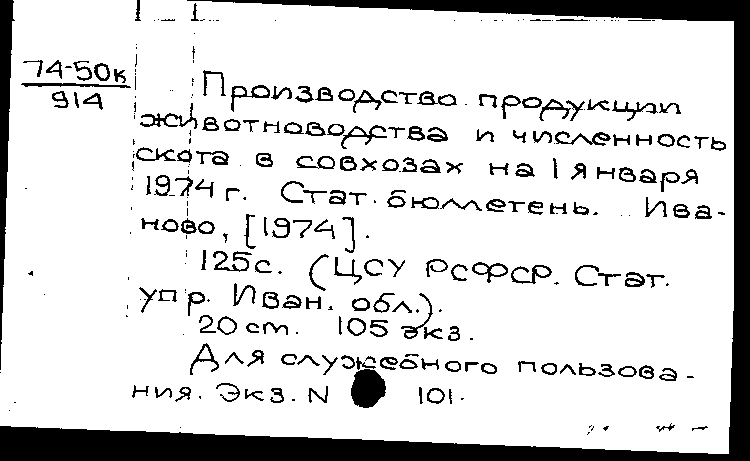 74-50к
914
Производство продукции
животноводства и численность
скота в совхозах на 1 января
1974 г. Стат. бюллетень. Ива-
ново, [1974].
125 с. (ЦСУ РСФСР. Стат.
упр. Иван. обл.).
20 см. 105 экз.
Для служебного пользова-
ния. Экз. N 101.